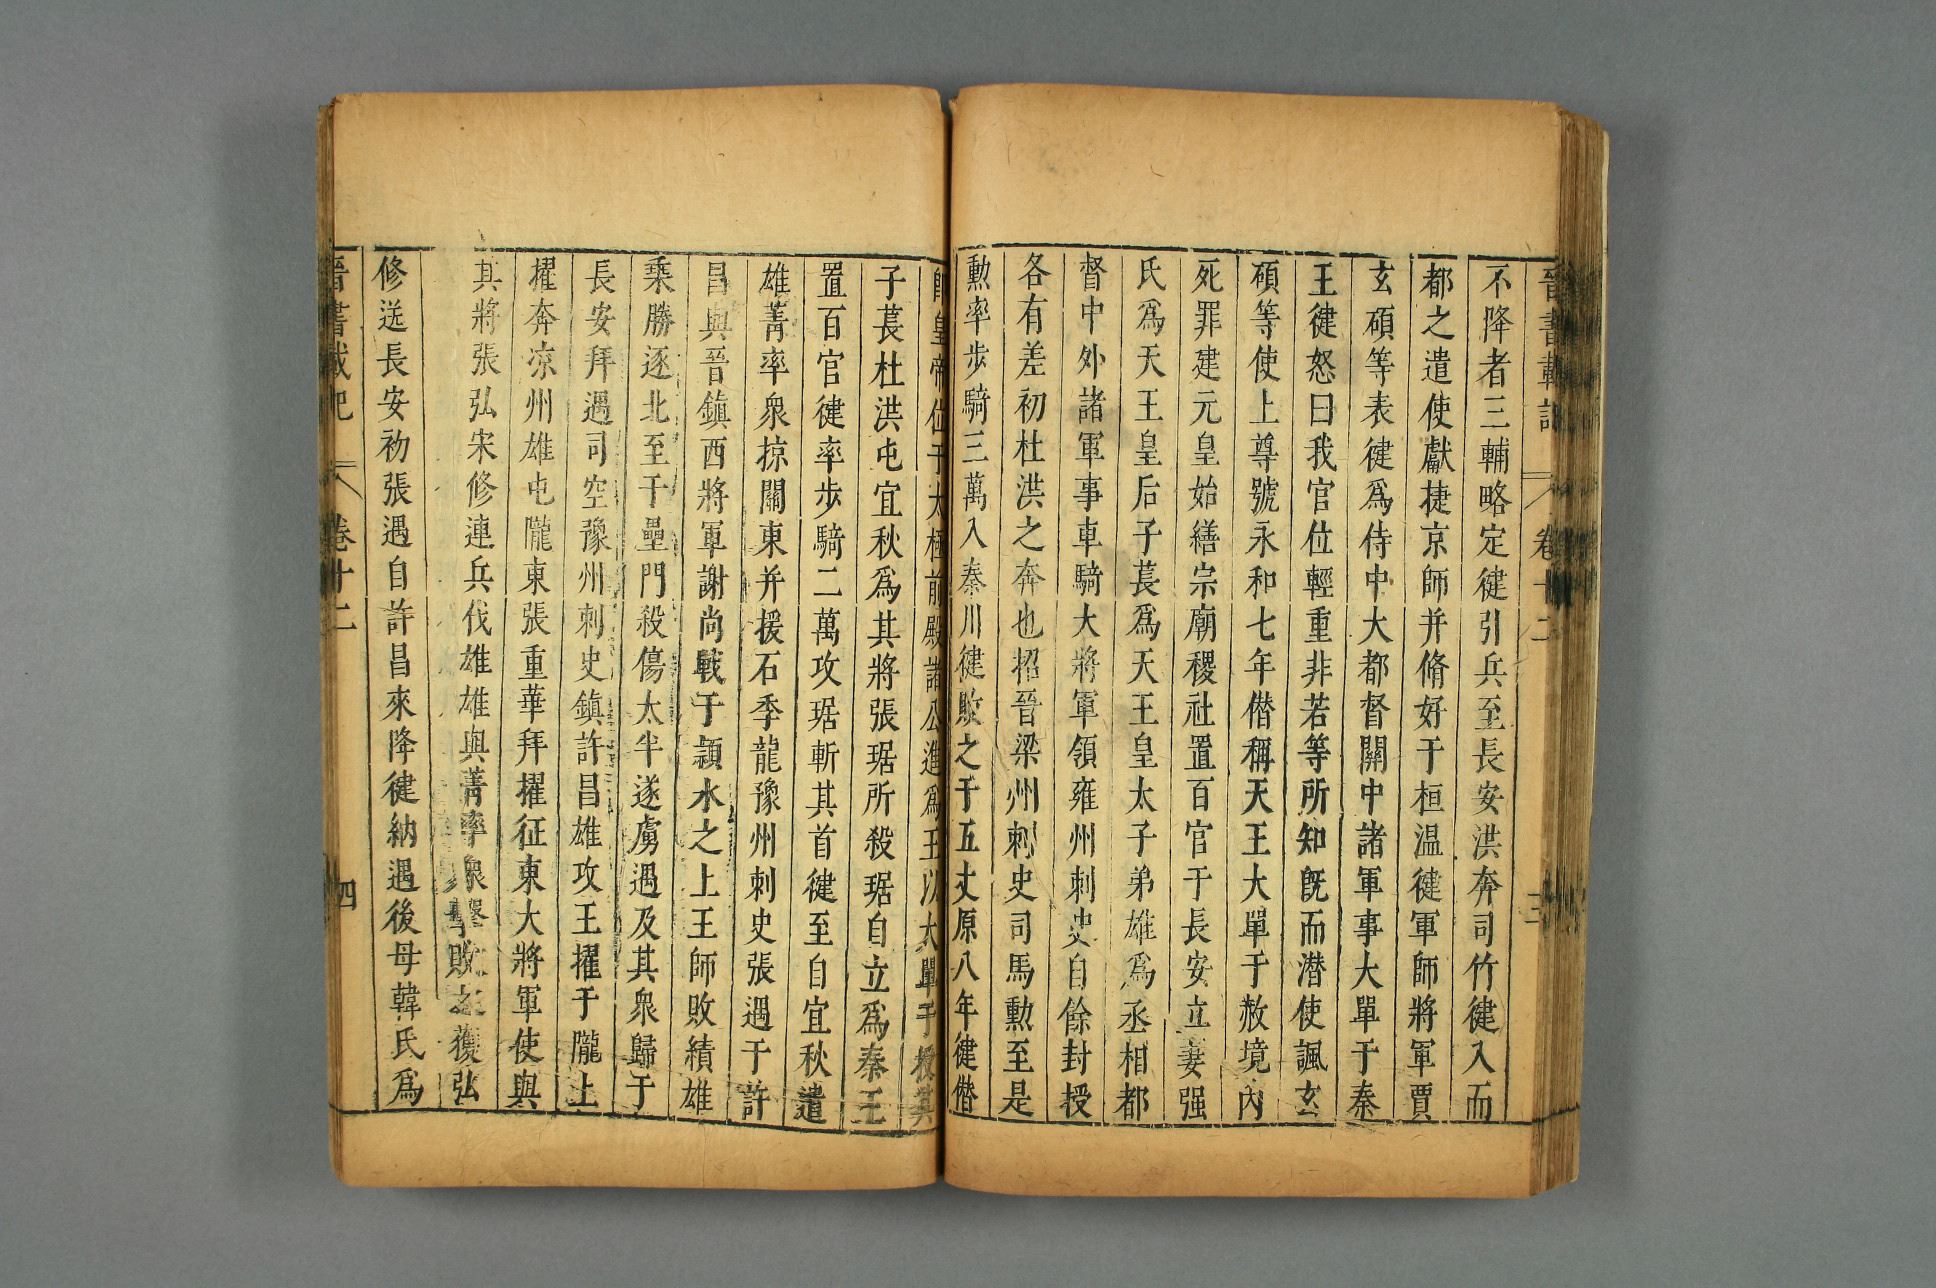 晉書載記 卷十二 三
不降者三輔略定健引兵至長安洪奔司竹健入而
都之遣使獻捷京師并脩好于桓温健軍師將軍賈
玄碩等表健爲侍中大都督關中諸軍事大單于秦
王健怒曰我官位輕重非若等所知旣而潜使諷玄
碩等使上尊號永和七年僣稱天王大單于赦境內
死罪建元皇始繕宗廟稷社置百官于長安立妻强
氏爲天王皇后子萇爲天王皇太子弟雄爲丞相都
督中外諸軍事車騎大將軍領雍州刺史自餘封授
各有差初杜洪之奔也招晉梁州刺史司馬勲至是
勲率步騎三萬入秦川健敗之于五丈原八年健僣
卽皇帝位于太極前殿諸公進爲王以大單于授其
子萇杜洪屯宜秋爲其將張琚所殺琚自立爲秦王
置百官健率步騎二萬攻琚斬其首健至自宜秋遣
雄菁率衆掠關東并援石季龍豫州刺史張遇于許
昌與晉鎮西將軍謝尚戰于頴水之上王師敗績雄
乘勝逐北至于壘門殺傷太半遂虜遇及其衆歸于
長安拜遇司空豫州刺史鎮許昌雄攻王擢于隴上
擢奔凉州雄屯隴東張重華拜擢征東大將軍使與
其將張弘宋修連兵伐雄雄與菁率衆擊敗之獲弘
修送長安初張遇自許昌來降健納遇後母韓氏爲
晉書載記 卷十二 四